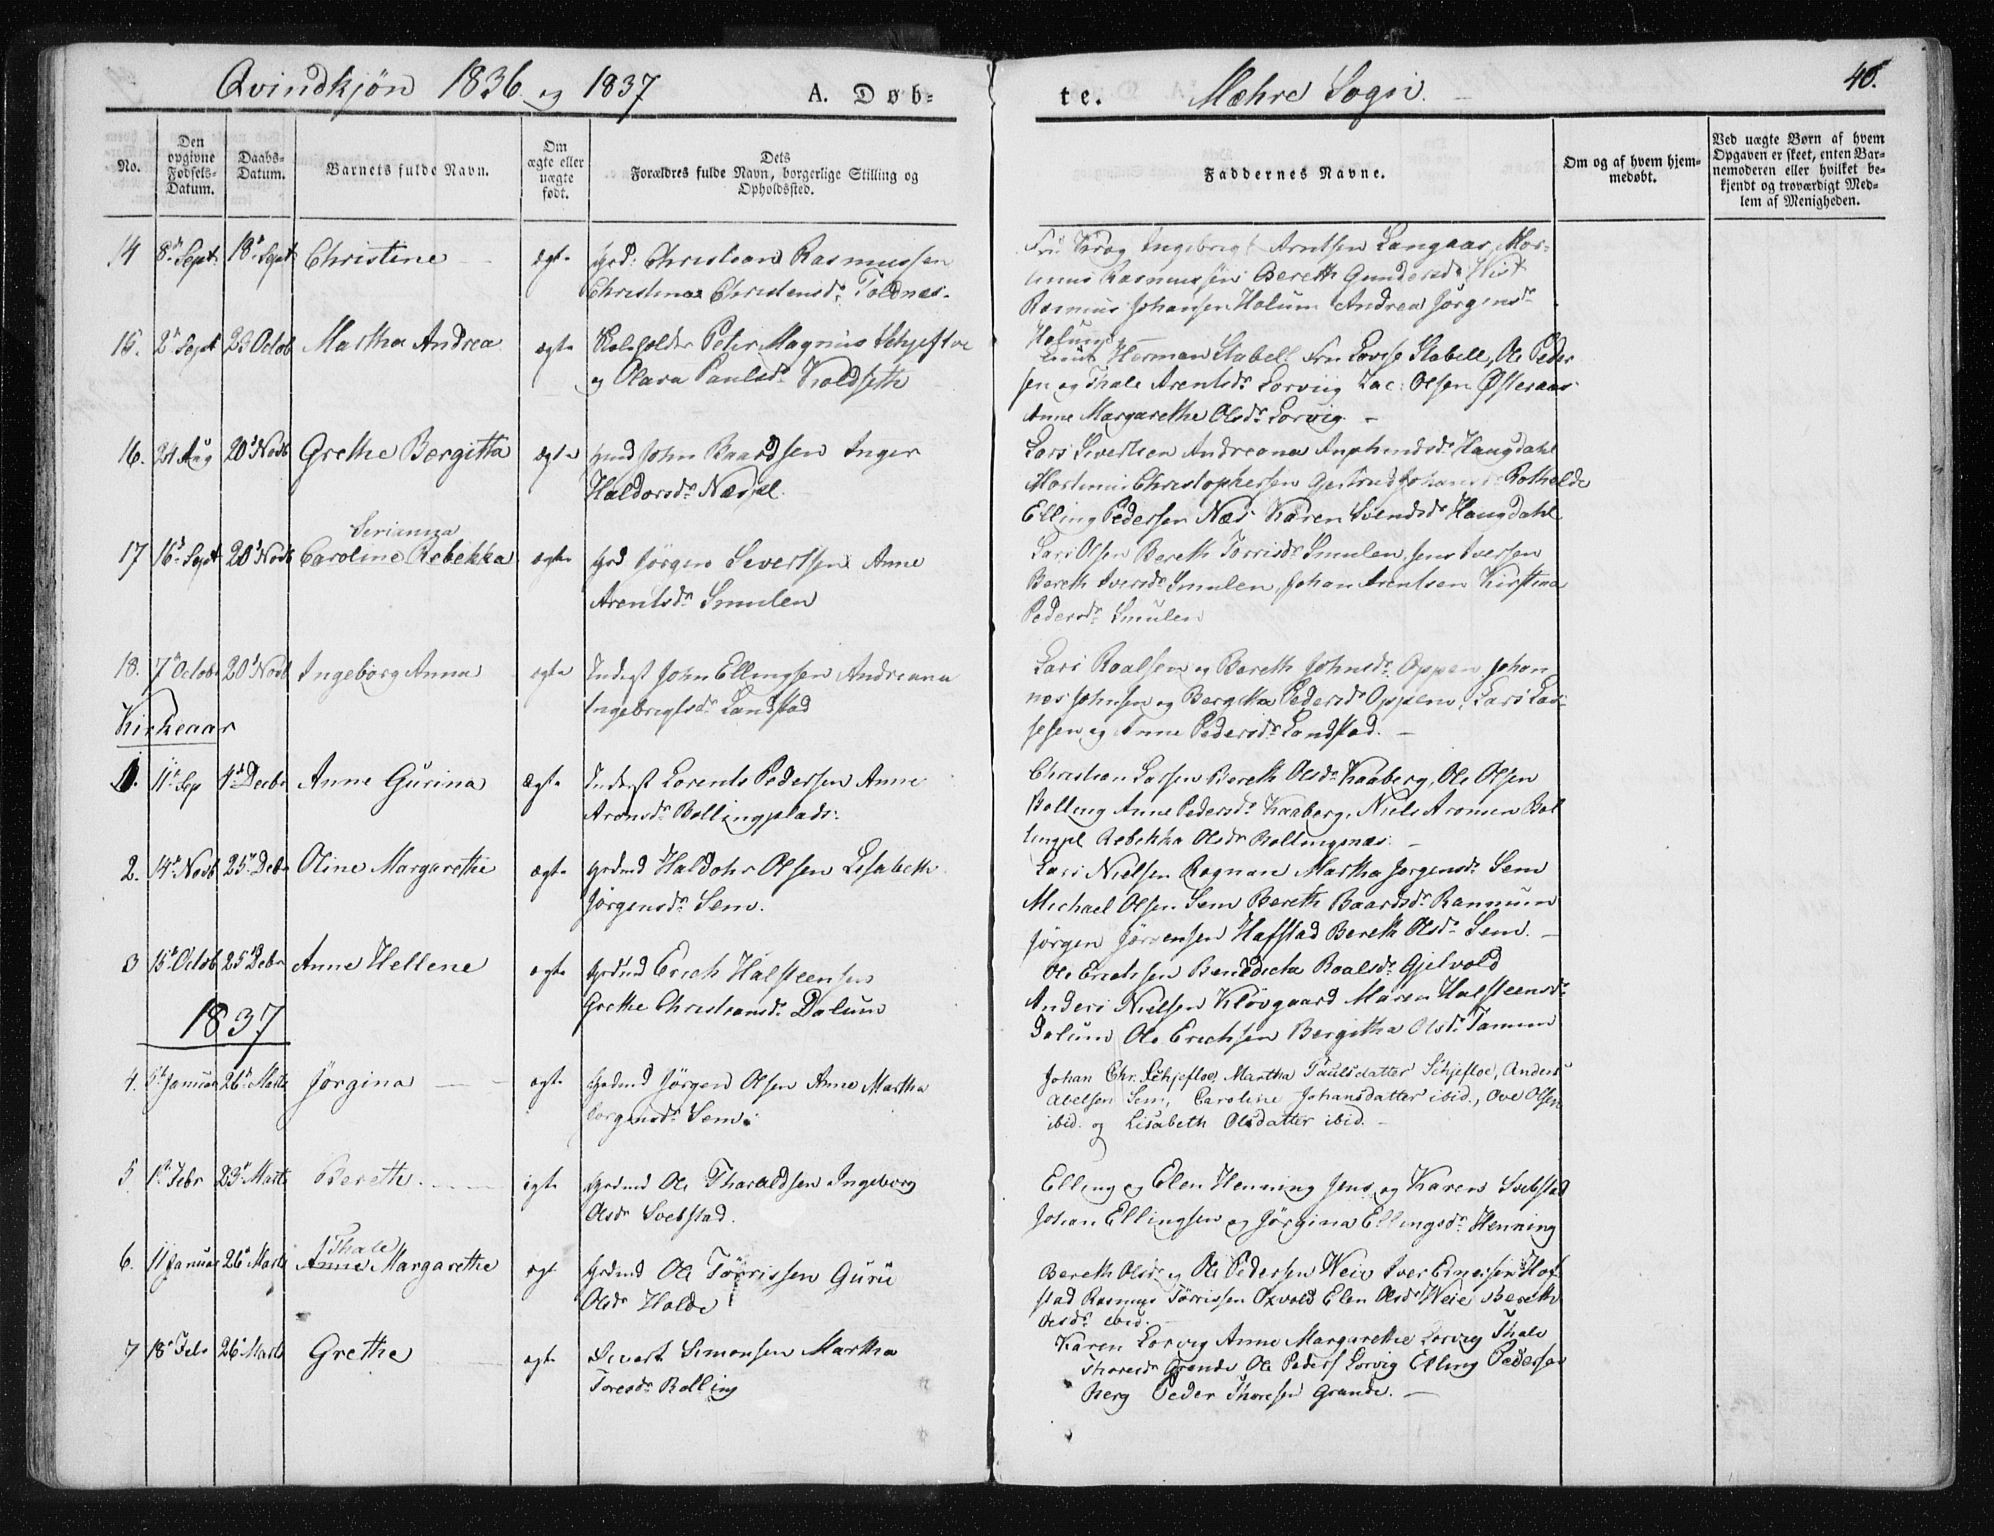 Qvindkjøn 1836 og 1837
A. Døb-
te.
Mæhre Sogn.
No.
Den opgivne Fødsels-Datum.
Daabs-Datum.
Barnets fulde Navn.
Om ægte eller uægte født.
Dets
Forældres fulde Navn, borgerlige Stilling og
Opholdsted.
Faddernes Navne.
Om og af hvem hjem-
medøbt.
Ved uægte Børn af hvem
Opgaven er skeet, enten Bar-
nemoderen eller hvilket be-
kjendt og troværdigt Med-
lem af Menigheden.
14 8de Sept. 18d Sept Christine ægte Grd: Christian Rasmussen
Christina Christensdr Toldnæs.
Ingebrigt Arntsen Langaas, Mor-
Rasmussen Bereth Gundersdr
Rasmus Johansen Holum Andrea Jørgensdr
Holum
15. 2d Sept 23 Octob Martha Andrea ægte Peter Magnus Schjefloe
og Olava Paulsdr Koldseth
Herman Stabell Fru Lovise Stabell, Ole Peder
sen og Thale Arentsdr Lorvig Zac: Olsen Østeraas
Anne Margarethe Olsdr Lorvig –
16. 24 Aug 20d Novb Grethe Bergitta ægte John Baardsen Inger
Haldorsdr Næspl.
Lars Sivertsen Andreana Haugdahl
Christophersen Gjertrud
Elling Pedersen Næs Karen Svendsdr Haugdahl
17 16d Sept 20d Novb Caroline Rebekka ægte Grd Jørgen Sivertsen Anne
Arentsdr Smulen
Lars Olsen Bereth Torrisdr Smulen, Jens Iversen
Bereth Iversdr Smulen, Johan Arentsen Kirstina
Pedersdr Smulen
18. 7d Octob 20d Novb Ingeborg Anna ægte Inderst John Ellingsen Andreana
Ingebrigtsdr Landstad
Lars Roalsen og Bereth Johnsdr Oppem, Johan
nes Johnsen og Bergitha Pedersdr Oppem, Lars Lar-
sen og Anne Pedersdr Landstad. –
Kirkeaar
1. 11d Sep 4d Decbr Anne Gurina Ægte Inderst Lorents Pedersen Anne
Aronsdr Bollingplads:
Christian Larsen Bereth Olsdr Kaaberg, Ole Olsen
Bolling Anne Pedersdr Kaaberg, Niels Aronsen Bol
lingpl Rebekka Olsdr Bollingnæs. –
2. 14d Novb 25d Debr Oline Margarethe ægte Grdmd Haldohr Olsen Lisabeth
Jørgensdr Sem.
Lars Nielsen Rognan Martha Jørgensdr Sem
Michael Olsen Sem Bereth Baardsdr Rannum
Jørgen Jørgensen Hafstad Bereth Olsdr Sem. –
3 15d Octob 25d Debr Anne Hellene ægte Grdmd Erich Halsteensen
Grethe Christiansdr Dalum
Ole Erichsen Benedicta Roalsdr Gjelvold
Anders Nielsen Kløvgaard Maren Halsteensdr
Dalum Ole Erichsen Bergitha Olsdr Tanum
1837
4. 5d Januar 26d Marts Jørgina ægte Gaardmd Jørgen Olsen Anne Martha
Jørgensdr Sem:
Johan Chr. Schjefloe, Martha Paulsdatter Schjefloe, Anders
Abelsen Sem, Caroline Johansdatter ibid., Ove Olsen
ibid. og Lisabeth Olsdatter ibid. –
5. 1d Febr 23d Marts Bereth. ægte Grdmd Ole Tharaldsen Ingeborg
Olsdr Svebstad.
Elling og Elen Henning Jens og Karen Svebstad
Johan Ellingsen og Jørgina Ellingsdr Henning
Thale
6. 11 Januar 26d Marts Anne Margarethe ægt Grdmd Ole Törrissen Guru
Olsdr Holde
Bereth Olsdr og Ole Pedersen Weie Iver Hof-
stad Rasmus Törrissen Oxvold Elen Olsdr Weie Bereth
Olsdr ibid.
7 18d Feb 26d Marts Grethe ægte Sivert Simonsen Martha
Toresdr Bolling
Karen Lorvig Anne Margarethe Lorvig Thale
Thoresdr Grande Ole Peders Lorvig Elling Pedersen
Berg Peder Thoresen Grande. –